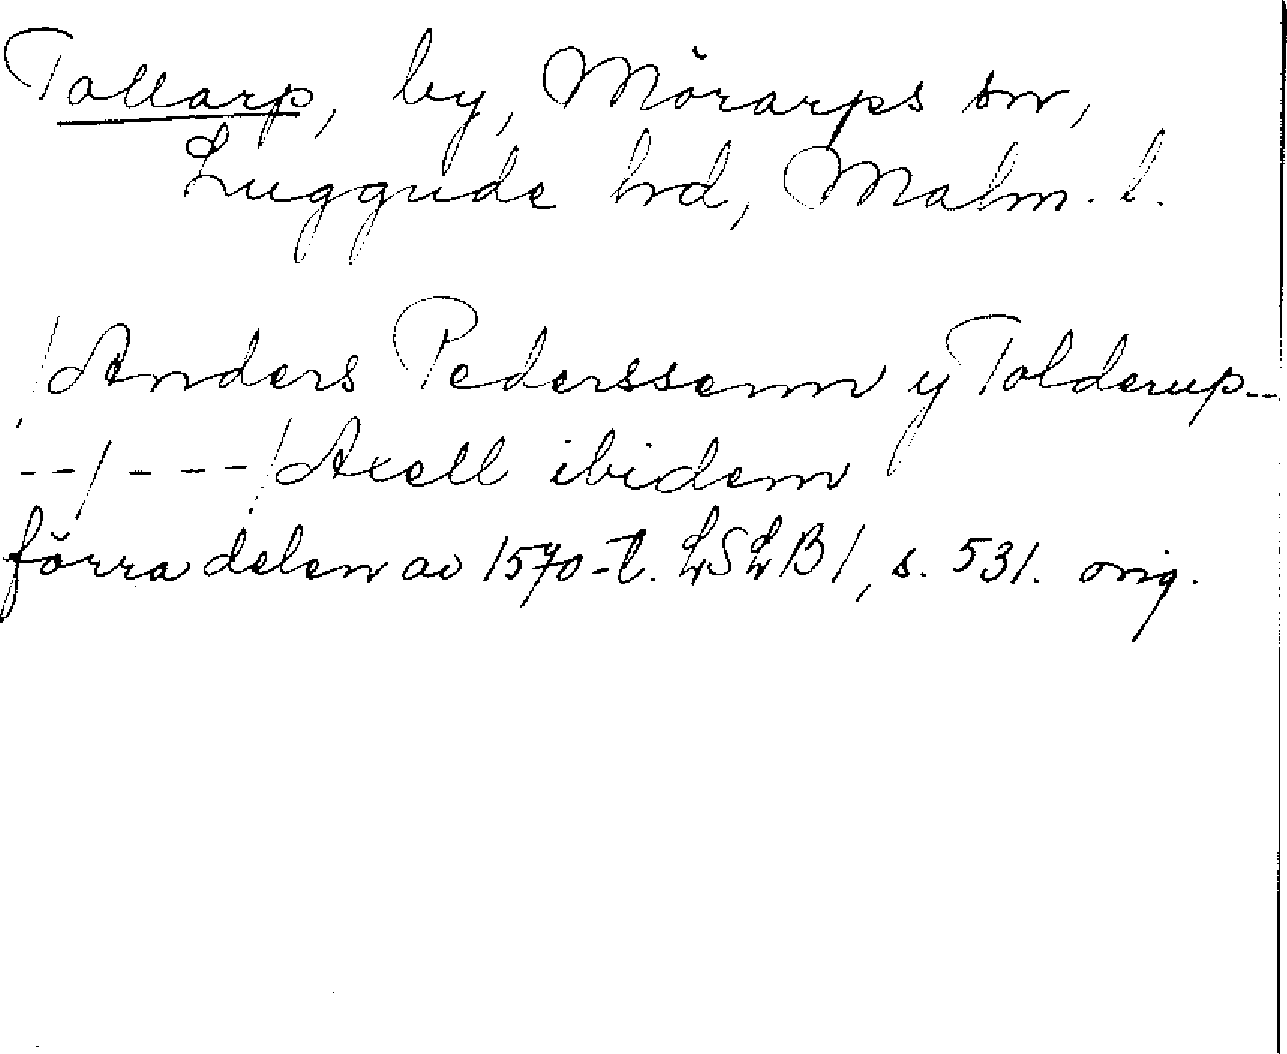 Tollarp, by, Mörarps sn,
Luggude hd, Malm. l.
/Anders Pederssenn y Tolderup--
--/----/Axell ibidem
förra delen av 1570-t. LSLB1, s. 531. orig.